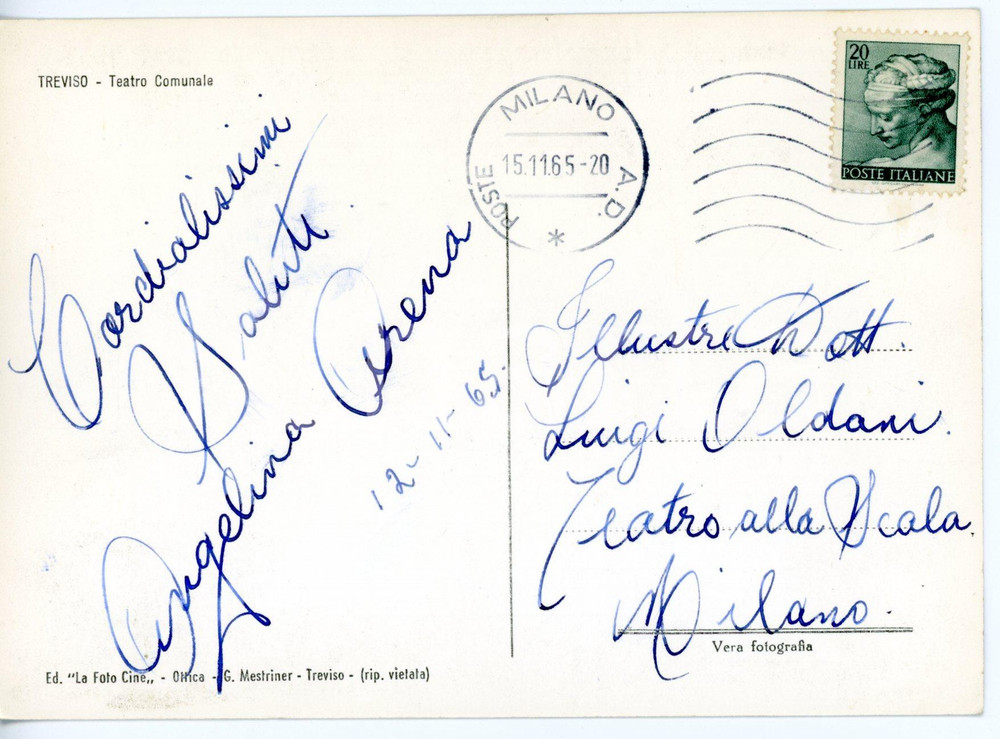 TREVISO - Teatro Comunale
MILANO A.D.
POSTE
15.11.65-20
20
LIRE
POSTE ITALIANE
Cordialissimi
Saluti
Angelina Arena
12-11-65.
Illustre Dott.
Luigi Oldani.
Teatro alla Scala.
Milano.
Vera fotografia
Ed. "La Foto Cine„ - Ottica - G. Mestriner - Treviso - (rip. vietata)